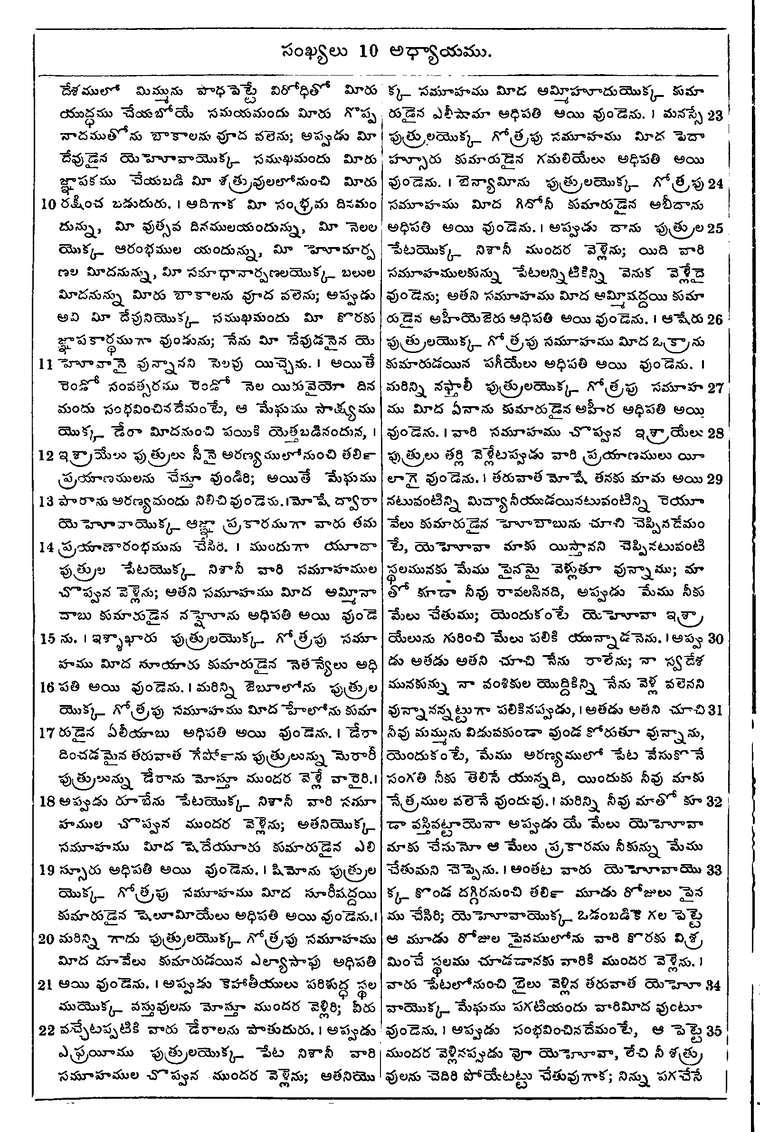 సంఖ్యలు 10 అధ్యాయము.
దేశములో మిమ్మును బాధపెట్టే విరోధితో మీరు
యుద్ధము చేయబోయే సమయమందు మీరు గొప్ప
నాదముతోను బాకాలను వూద వలెను; అప్పుడు మీ
దేవుడైన యెహోవాయొక్క సముఖమందు మీరు
జ్ఞాపకము చేయబడి మీ శత్రువులలోనుంచి మీరు
10 రక్షించ బడుదురు. । ఆదిగాక మీ సంభ్రమ దినమం
దున్ను, మీ వుత్సవ దినములయందున్ను, మీ నెలల
యొక్క ఆరంభముల యందున్ను, మీ హోమార్ప
ణల మీదనున్ను, మీ సమాధానార్పణలయొక్క బలుల
మీదనున్ను మీరు బాకాలను వూద వలెను; అప్పుడు
అవి మీ దేవునియొక్క సముఖమందు మీ కొరకు
జ్ఞాపకార్థముగా వుండును; నేను మీ దేవుడనైన యె
11 హోవానై వున్నానని సెలవు యిచ్చెను. । అయితే
రెండో సంవత్సరము రెండో నెల యిరువైయో దిన
మందు సంభవించినదేమంటే, ఆ మేఘము సాక్ష్యము
యొక్క డేరా మీదనుంచి పయికి యెత్తబడినందున, ।
12 ఇశ్రాయేలు పుత్రులు సీనై అరణ్యములోనుంచి తర్లి
ప్రయాణములను చేస్తూ వుండిరి; అయితే మేఘము
13 పారాను అరణ్యమందు నిలిచి వుండెను. ।మోషే ద్వారా
యెహోవాయొక్క ఆజ్ఞా ప్రకారముగా వారు తమ
14 ప్రయాణారంభమును చేసిరి. । ముందుగా యూదా
పుత్రుల పేటయొక్క నిశానీ వారి సమూహముల
చొప్పున వెళ్లెను; అతని సమూహము మీద అమ్మినా
దాబు కుమారుడైన నహ్షోను అధిపతి అయి వుండె
15 ను. । ఇశ్శాఖారు పుత్రులయొక్క గోత్రపు సమూ
హము మీద సూయారు కుమారుడైన నెతన్యేలు అధి
16 పతి అయి వుండెను. । మరిన్ని జెబూలోను పుత్రుల
యొక్క గోత్రపు సమూహము మీద హేలోను కుమా
17 రుడైన ఏలీయాబు అధిపతి అయి వుండెను. । డేరా
దించడమైన తరువాత గేషోకాను పుత్రులున్ను మెరారీ
పుత్రులున్ను డేరాను మోస్తూ ముందర వెళ్లే వారైరి.।
18 అప్పుడు రూబేను పేటయొక్క నిశానీ వారి సమూ
హముల చొప్పున ముందర వెళ్లెను; అతనియొక్క
సమూహము మీద షెదేయూరు కుమారుడైన ఎలీ
19 స్సూరు అధిపతి అయి వుండెను. । షిమోను పుత్రుల
యొక్క గోత్రపు సమూహము మీద సూరీషద్దయి
కుమారుడైన షెలూమియేలు అధిపతి అయి వుండెను.।
20 మరిన్ని గాదు పుత్రులయొక్క గోత్రపు సమూహము
మీద దూవేలు కుమారుడయిన ఎల్యాసాపు అధిపతి
21 అయి వుండెను. । అప్పుడు కెహాతీయులు పరిశుద్ధ స్థల
ముయొక్క వస్తువులను మోస్తూ ముందర వెళ్లిరి; వీరు
22 వచ్చేటప్పటికి వారు డేరాలను పాతుదురు. । అప్పుడు
ఎఫ్రాయీము పుత్రులయొక్క పేట నిశానీ వారి
సమూహముల చొప్పున ముందర వెళ్లెను; అతనియొ
క్క సమూహము మీద అమ్మిహూదుయొక్క కుమా
రుడైన ఎలీషామా అధిపతి అయి వుండెను. । మనస్సే 23
పుత్రులయొక్క గోత్రపు సమూహము మీద పెదా
హ్సూరు కుమారుడైన గమలియేలు అధిపతి అయి
వుండెను. । బెన్యామీను పుత్రులయొక్క గోత్రపు 24
సమూహము మీద గిదోనీ కుమారుడైన అబీదాను
అధిపతి అయి వుండెను. । అప్పుడు దాను పుత్రుల 25
పేటయొక్క నిశానీ ముందర వెళ్లెను; యిది వారి
సమూహములకున్ను పేటలన్నిటికిన్ని వెనుక వెళ్లేదై
వుండెను; అతని సమూహము మీద ఆమ్మీషద్దయి కుమా
రుడైన అహీయెజెరు అధిపతి అయి వుండెను. । ఆషేరు 26
పుత్రులయొక్క గోత్రపు సమూహము మీద ఒక్రాను
కుమారుడయిన పగీయేలు అధిపతి అయి వుండెను. ।
మరిన్ని నఫ్తాలీ పుత్రులయొక్క గోత్రపు సమూహ 27
ము మీద ఏనాను కుమారుడైన అహీర అధిపతి అయి
వుండెను. । వారి సమూహము చొప్పున ఇశ్రాయేలు 28
పుత్రులు తర్లి వెళ్లేటప్పుడు వారి ప్రయాణములు యీ
లాగై వుండెను. । తరువాత మోషే తనకు మామ అయి 29
నటువంటిన్ని మిద్యానీయుడయినటువంటిన్ని రెయూ
వేలు కుమారుడైన హోబాబును చూచి చెప్పినదేమం
టే, యెహోవా మాకు యిస్తానని చెప్పినటువంటి
స్థలమునకు మేము పైనమై వెళ్లుతూ వున్నాము; మా
తో కూడా నీవు రావలసినది, అప్పుడు మేము నీకు
మేలు చేతుము; యెందుకంటే యెహోవా ఇశ్రా
యేలును గురించి మేలు పలికి యున్నాడనెను. । అప్పు 30
డు అతడు అతని చూచి నేను రాలేను; నా స్వదేశ
మునకున్ను నా వంశికుల యొద్దికిన్ని నేను వెళ్ల వలెనని
వున్నానన్నట్టుగా పలికినప్పుడు, । అతడు అతని చూచి 31
నీవు మమ్మును విడువకుండా వుండ కోరుతూ వున్నాను,
యెందుకంటే, మేము అరణ్యములో పేట వేసుకొనే
సంగతి నీకు తెలిసే యున్నది, యిందుకు నీవు మాకు
నేత్రముల వలెనే వుందువు. । మరిన్ని నీవు మాతో కూ 32
డా వస్తివట్టాయెనా అప్పుడు యే మేలు యెహోవా
మాకు చేసునో ఆ మేలు ప్రకారము నీకున్ను మేము
చేతుమని చెప్పెను. । అంతట వారు యెహోవాయొ 33
క్క కొండ దగ్గిరనుంచి తర్లి మూడు రోజులు పైన
ము చేసిరి; యెహోవాయొక్క ఒడంబడికె గల పెట్టె
ఆ మూడు రోజుల పైనములోను వారి కొరకు విశ్ర
మించే స్థలము చూడడానకు వారికి ముందర వెళ్లెను. ।
వారు పేటలోనుంచి బైలు వెళ్లిన తరువాత యెహో 34
వాయొక్క మేఘము పగటియందు వారిమీద వుంటూ
వుండెను. । అప్పుడు సంభవించినదేమంటే, ఆ పెట్టె 35
ముందర వెళ్లినప్పుడు వో యెహోవా, లేచి నీ శత్రు
వులను చెదిరి పోయేటట్టు చేతువుగాక; నిన్ను పగచేసే